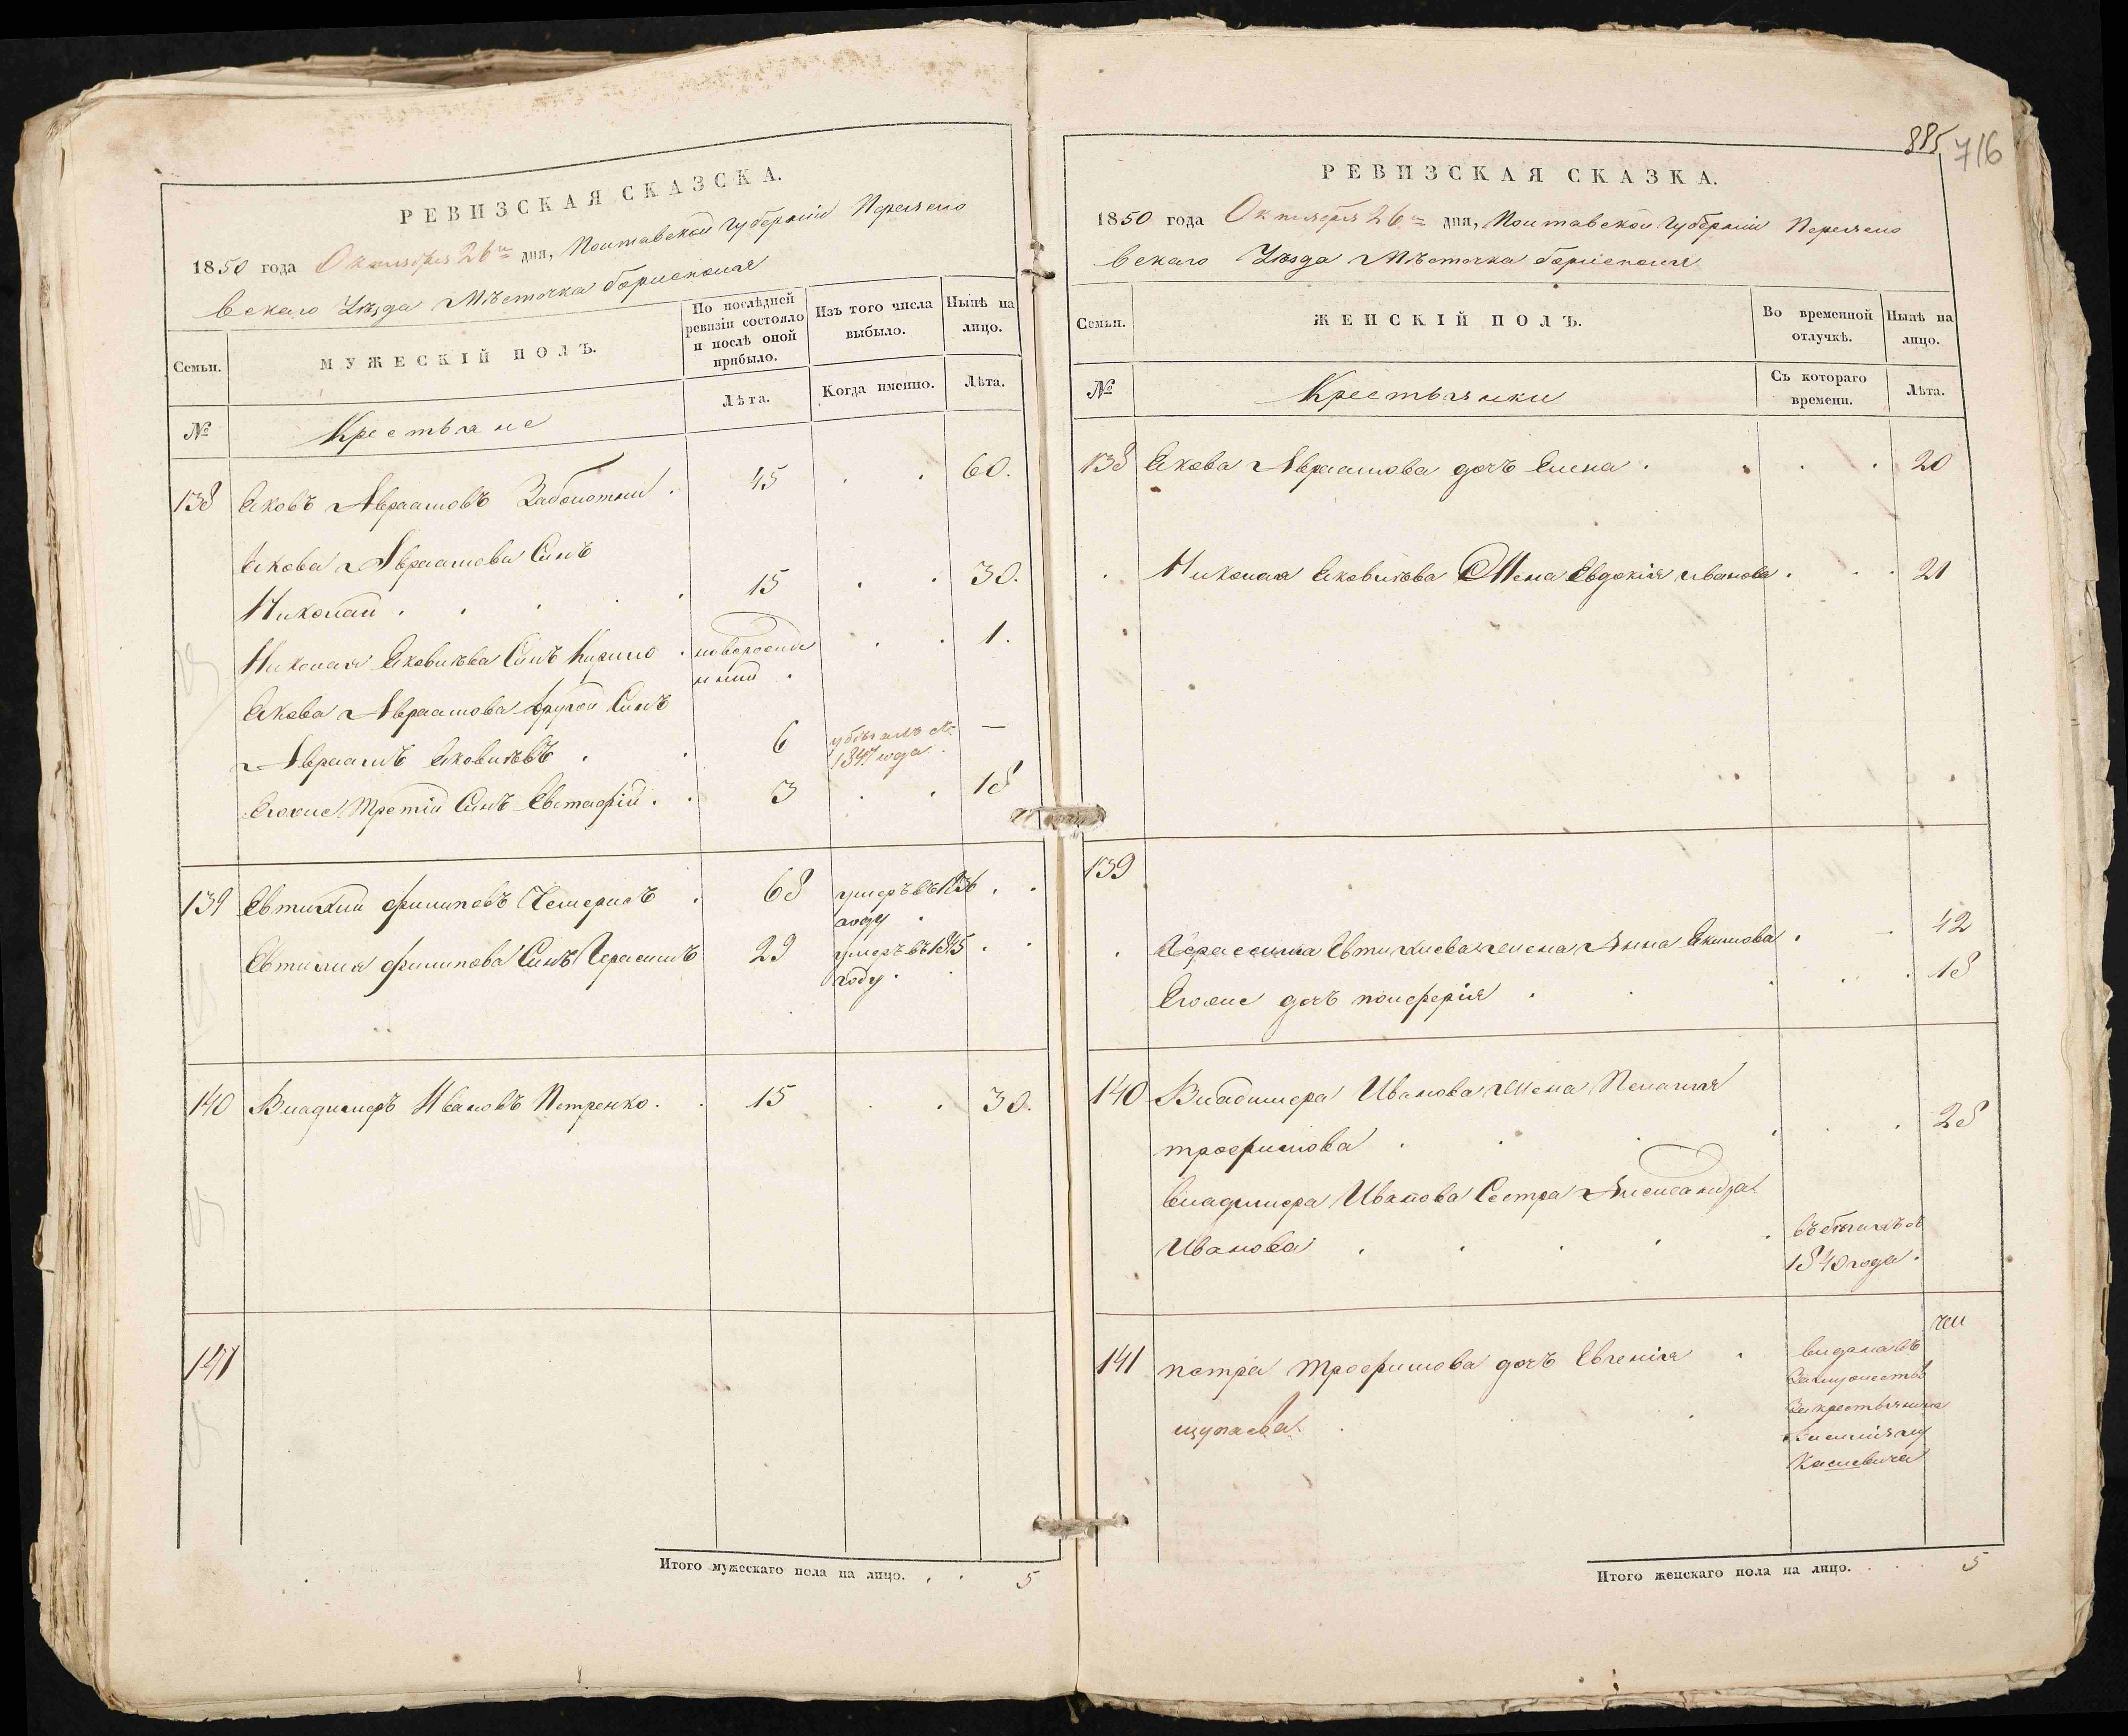 РЕВИЗСКАЯ СКАЗСКА.
1850 года Октября 26го дня, Полтавской Губерніи Переясло
вскаго Уѣзда Мѣсточка борисполя
Семьи.
МУЖЕСКІЙ ПОЛЪ.
По послѣдней ревизіи состояло и послѣ оной прибыло.
Изъ того числа выбыло.
Нынѣ на лицо.
№
Крестьяне
Лѣта.
Когда именно.
Лѣта.
138 Яковъ Авраамовъ Заболотный . 45 . . 60.
Якова Авраамова Синъ
Николай . . . . 15 . . 30.
Николая Яковлѣва Синъ Кирило . новорожден . . 1.
ный .
Якова Авраамова другой Синъ
Авраамъ Яковлѣвъ . . 6 —
1847 года .
Егоже Третій Синъ Евстафій . . 3 . . 18
139 Евтихий филиповъ Чемерисъ . 68 умеръ въ 1836 . .
году .
Евтихия филипова Синъ Герасимъ 29 умеръ въ 1845 . .
году .
140 Владимеръ Ивановъ Петренко . . 15 . . 30.
141
Итого мужескаго пола на лицо. . . 5
885
716
РЕВИЗСКАЯ СКАЗКА.
1850 года Октября 26го дня, Полтавской Губерніи Переясло
вскаго Уѣзда Мѣсточка борисполя
Семьи.
ЖЕНСКІЙ ПОЛЪ.
Во временной отлучкѣ.
Нынѣ на лицо.
№
Крестьянки
Съ котораго времени.
Лѣта.
138 Якова Авраамова дочъ Елена . . . . 20
. Николая Яковлѣва Жена Евдокія иванова . . . 21
139
. Герасима Евтихиева жена Анна Екимова . . 42
Егоже дочъ поліферія . . . . . 18
140 Владимера Иванова жена Пелагия
трофимова . . . . . . 28
владимера Иванова Сестра Александра
Иванова . . . . . въ бѣгахъ съ
1840 года .
141 петра трофимова дочъ Евгенія . видана въ
Замужество
За крестьянина
щупаева . . .
Итого женскаго пола на лицо. . . 5